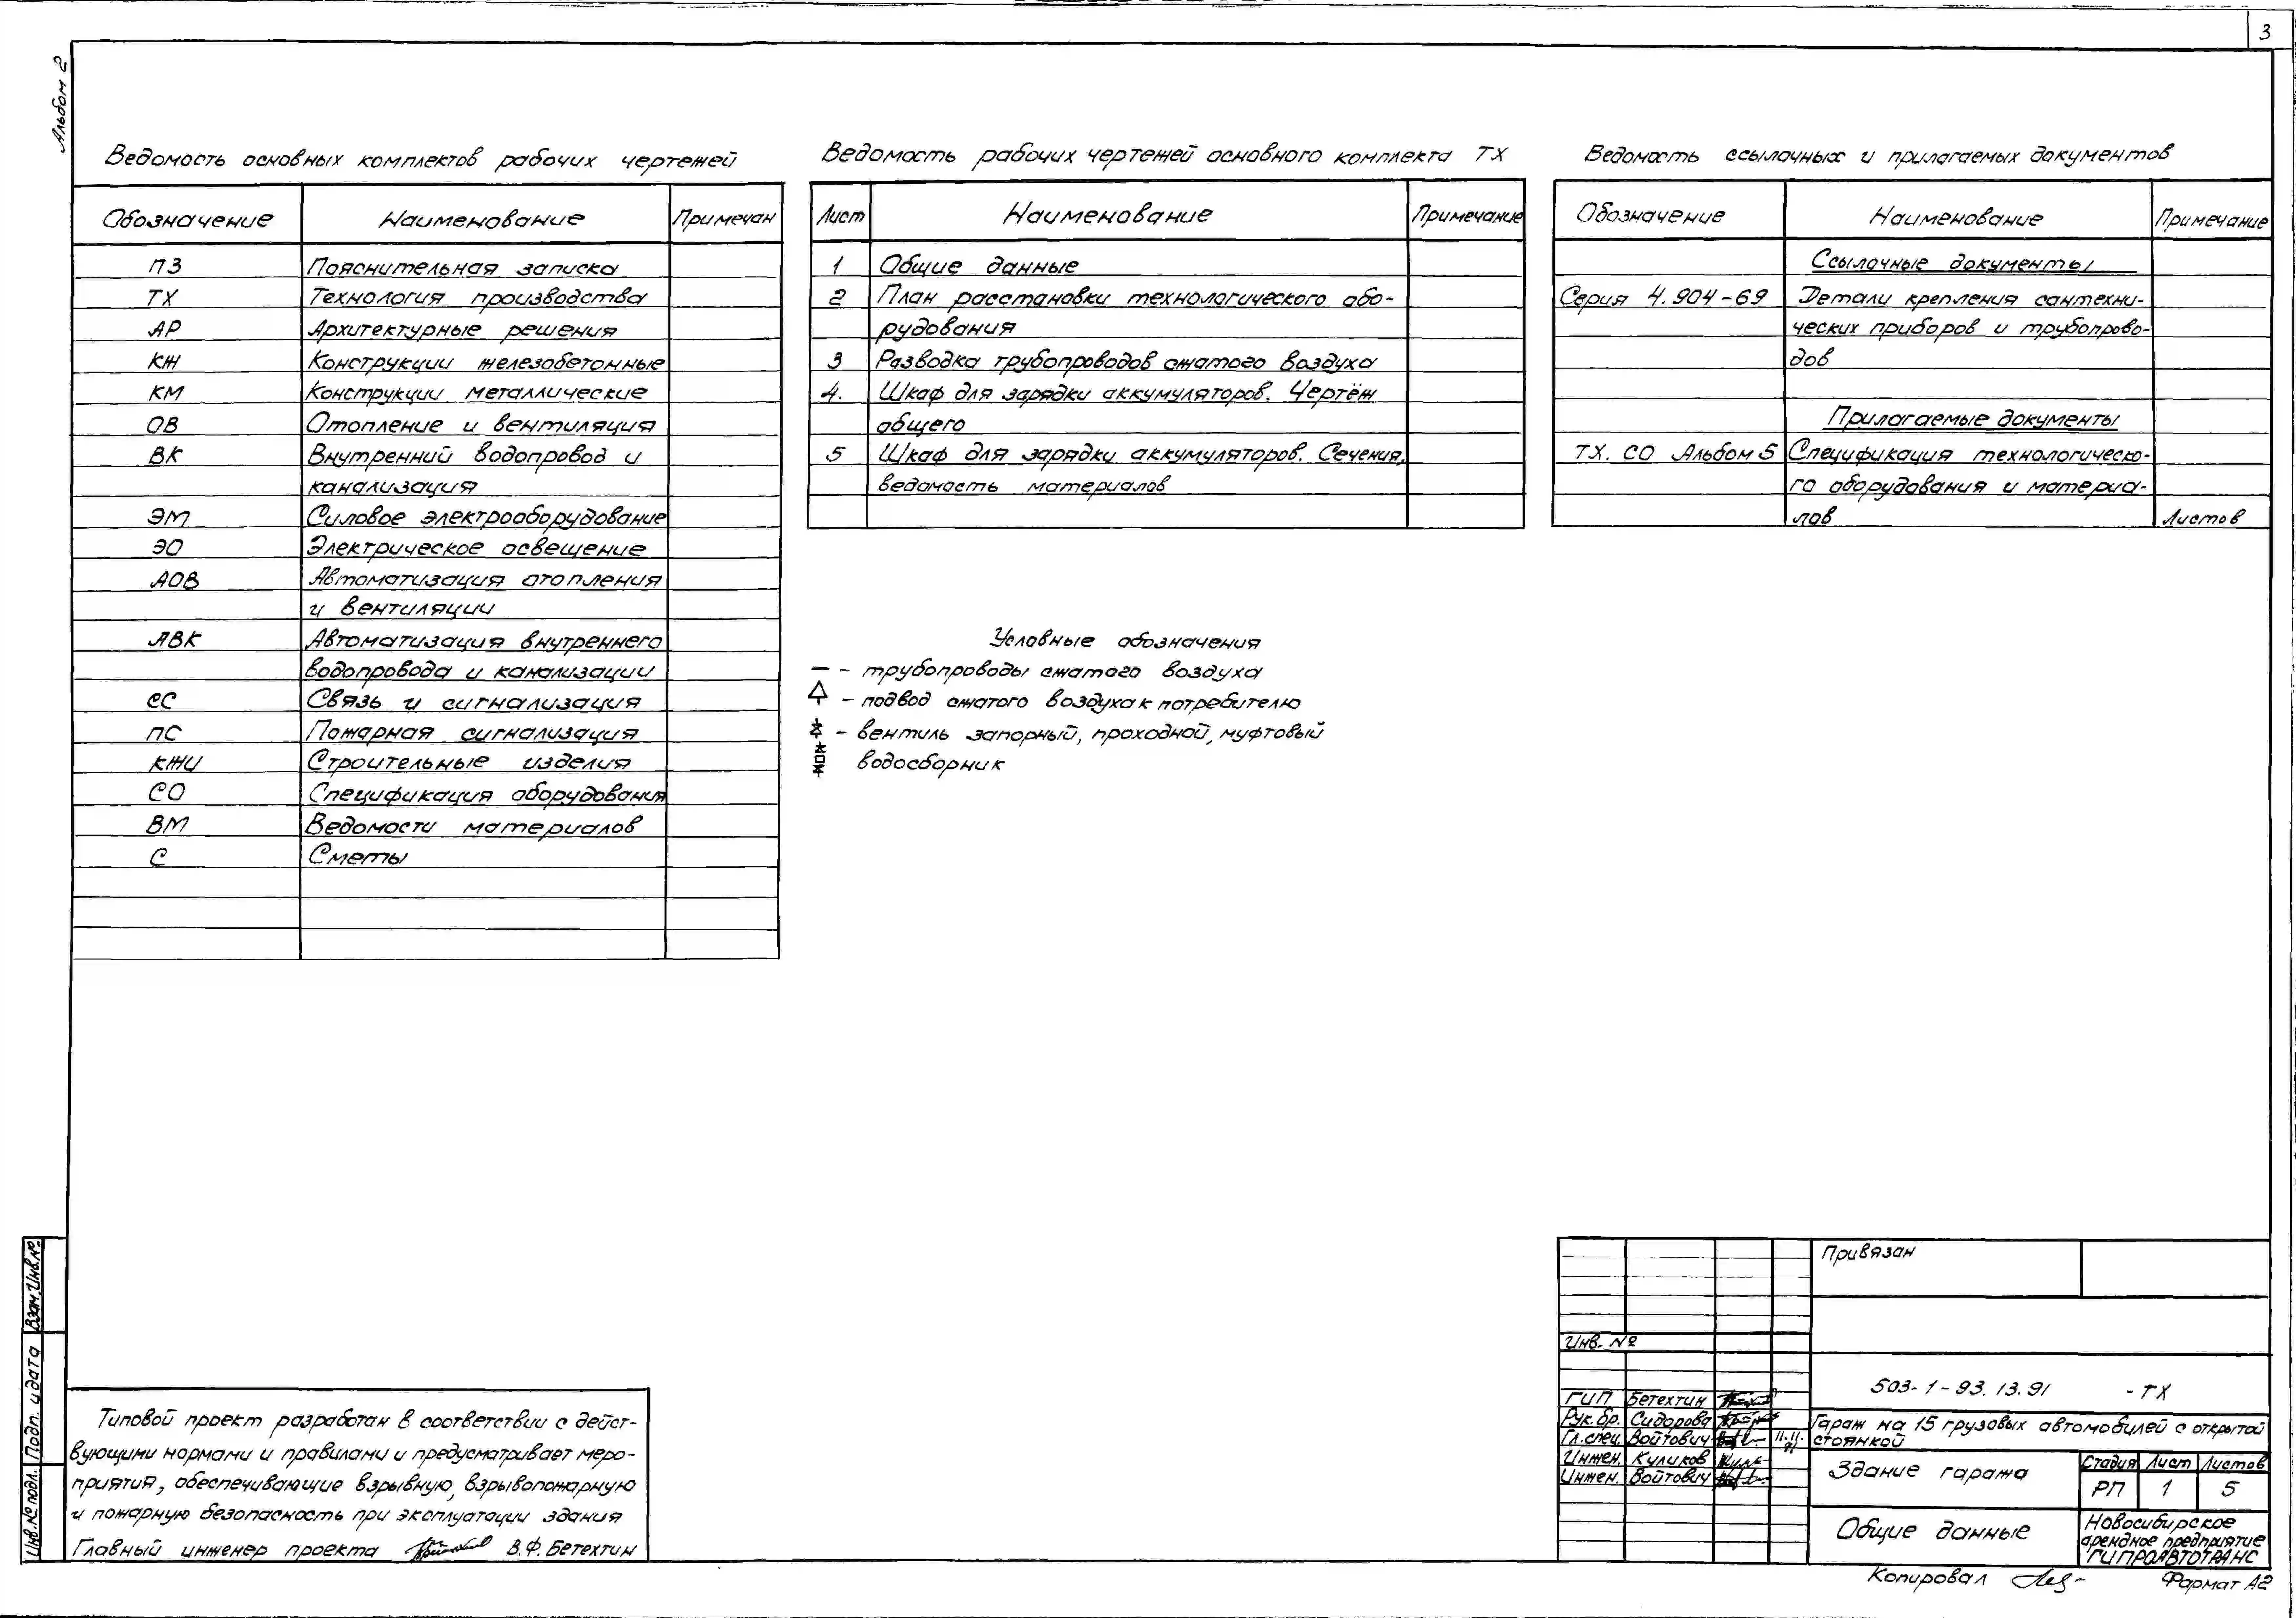 3
Альбом 2
Ведомость основных комплектов рабочих чертежей
Обозначение Наименование Примечан
ПЗ Пояснительная записка
ТХ Технология производства
АР Архитектурные решения
КЖ Конструкции железобетонные
КМ Конструкции металлические
ОВ Отопление и вентиляция
ВК Внутренний водопровод и
канализация
ЭМ Силовое электрооборудование
ЭО Электрическое освещение
АОВ Автоматизация отопления
и вентиляции
АВК Автоматизация внутреннего
водопровода и канализации
СС Связь и сигнализация
ПС Пожарная сигнализация
КЖИ Строительные изделия
СО Спецификация оборудования
ВМ Ведомости материалов
С Сметы
Ведомость рабочих чертежей основного комплекта ТХ
Лист Наименование Примечание
1 Общие данные
2 План расстановки технологического обо-
рудования
3 Разводка трубопроводов сжатого воздуха
4. Шкаф для зарядки аккумуляторов. Чертёж
общего
5 Шкаф для зарядки аккумуляторов. Сечения,
ведомость материалов
Ведомость ссылочных и прилагаемых документов
Обозначение Наименование Примечание
Ссылочные документы
Серия 4.904-69 Детали крепления сантехни-
ческих приборов и трубопрово-
дов
Прилагаемые документы
ТХ. СО Альбом 5 Спецификация технологическо-
го оборудования и материа-
лов Листов
Условные обозначения
- трубопроводы сжатого воздуха
- подвод сжатого воздуха к потребителю
- вентиль запорный, проходной, муфтовый
водосборник
Типовой проект разработан в соответствии с дейст-
вующими нормами и правилами и предусматривает меро-
приятия, обеспечивающие взрывную, взрывопожарную
и пожарную безопасность при эксплуатации здания
Главный инженер проекта В.Ф. Бетехтин
Взам. Инв. №
Подп. и дата
Инв. № подл.
Привязан
Инв. №
503-1-93.13.91 -ТХ
ГИП Бетехтин
Рук. бр. Сидорова
Гл. спец. Войтович 11.11.91
Инжен. Куликов
Инжен. Войтович
Гараж на 15 грузовых автомобилей с открытой
стоянкой
Здание гаража
Стадия Лист Листов
РП 1 5
Общие данные
Новосибирское
арендное предприятие
ГИПРОАВТОТРАНС
Копировал
Формат А2